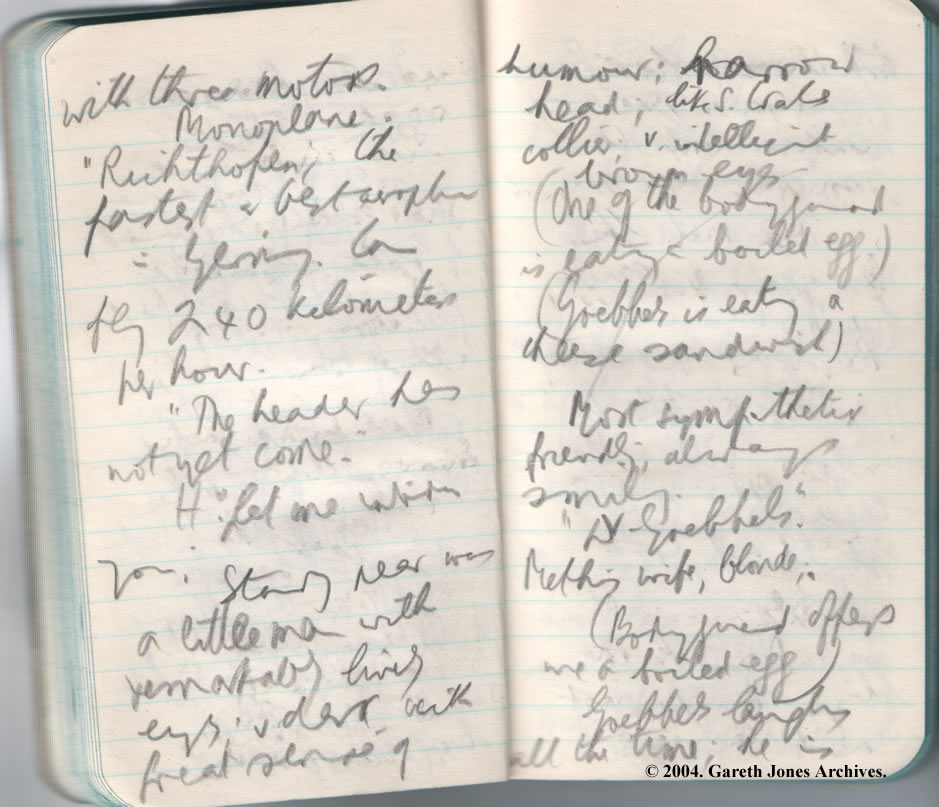 with three motors.
Monoplane.
"Richthofen", the
fastest & best aeroplane
in Germany. Can
fly 240 kilometers
per hour.
"The Leader has
not yet come."
H "Let me introduce
you. Standing near was
a little man with
remarkably lively
eyes; v dark with
great sense of
humour; narrow
head; like S. Wales
collier; v. intelligent
brown eyes
(One of the bodyguard
is eating a boiled egg.)
(Goebbels is eating a
cheese sandwich)
Most sympathetic
friendly, always
smiling.
"Dr Goebbels."
Met his wife, blonde,
(Bodyguard offers
me a boiled egg)
Goebbels laughs
all the time; he is
© 2004. Gareth Jones Archives.